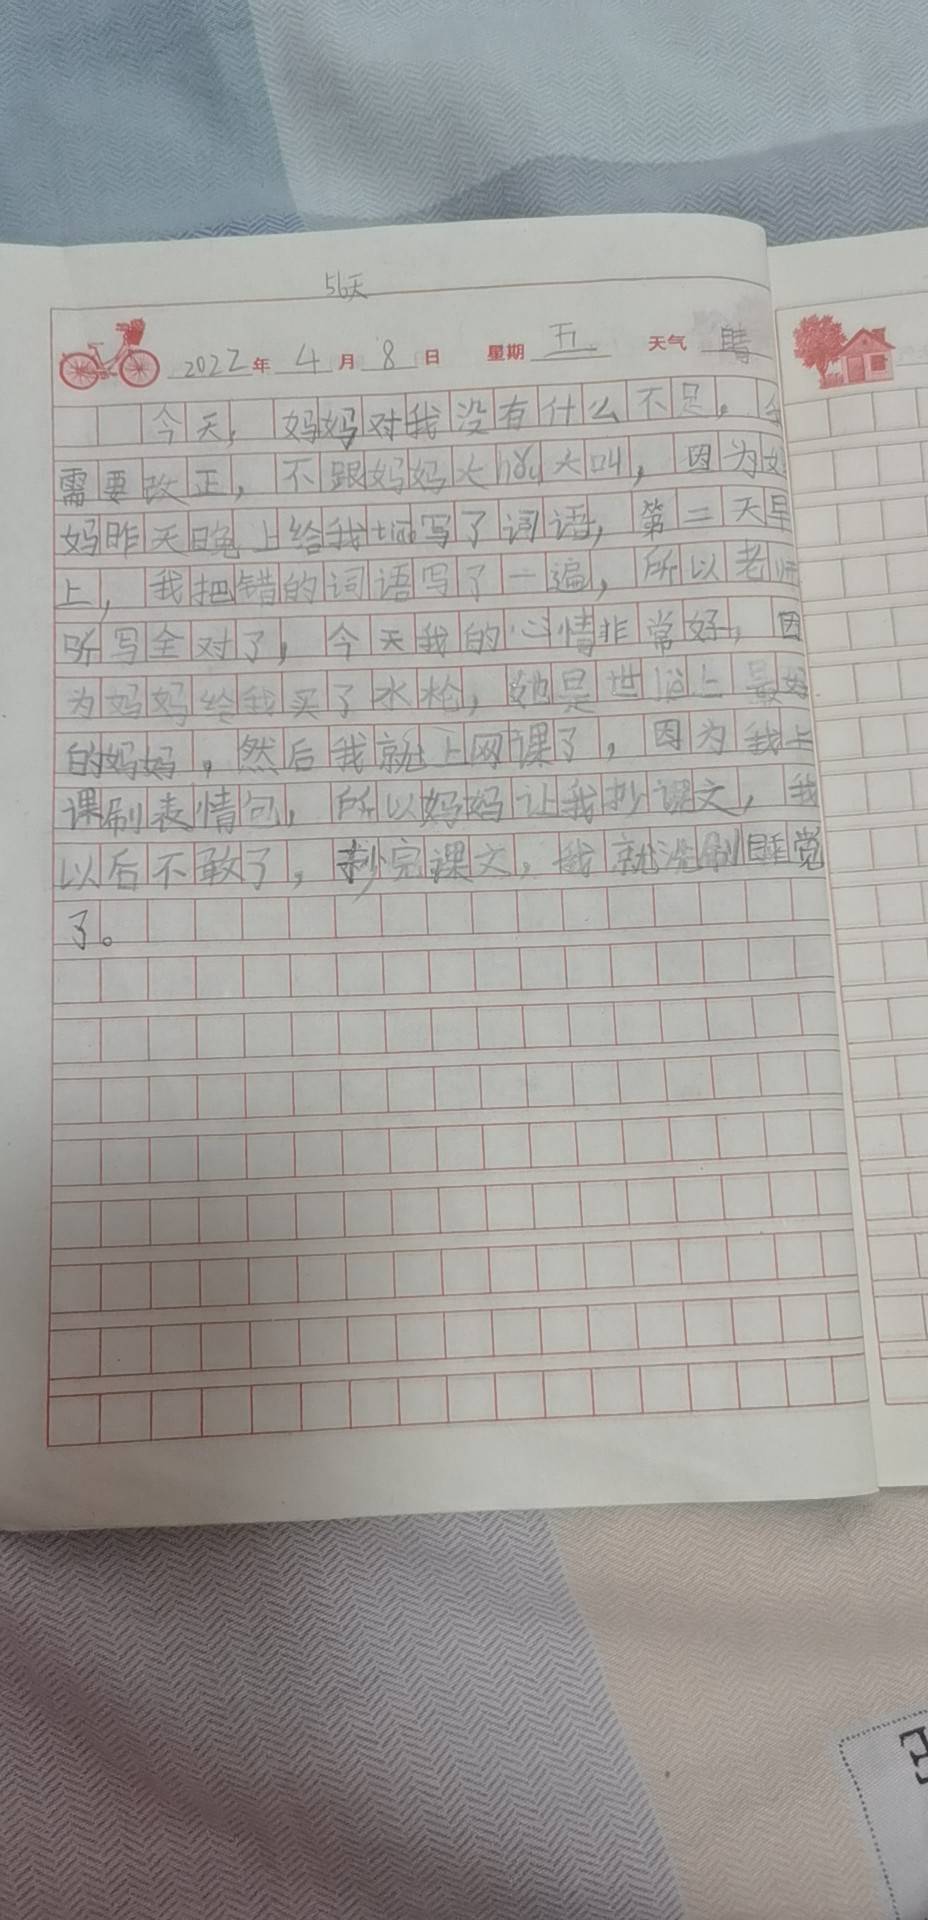 56天
2022年 4月 8日 星期 五 天气 晴
今天，妈妈对我没有什么不足，
需要改正，不跟妈妈大hǒu大叫，因为妈
妈昨天晚上给我tīng写了词语，第二天早
上，我把错的词语写了一遍，所以老师
听写全对了，今天我的心情非常好，因
为妈妈给我买了水枪，她是世 上最好
的妈妈，然后我就上网课了，因为我上
课刷表情包，所以妈妈让我抄课文，我
以后不敢了，抄完课文，我就洗刷睡觉
了。